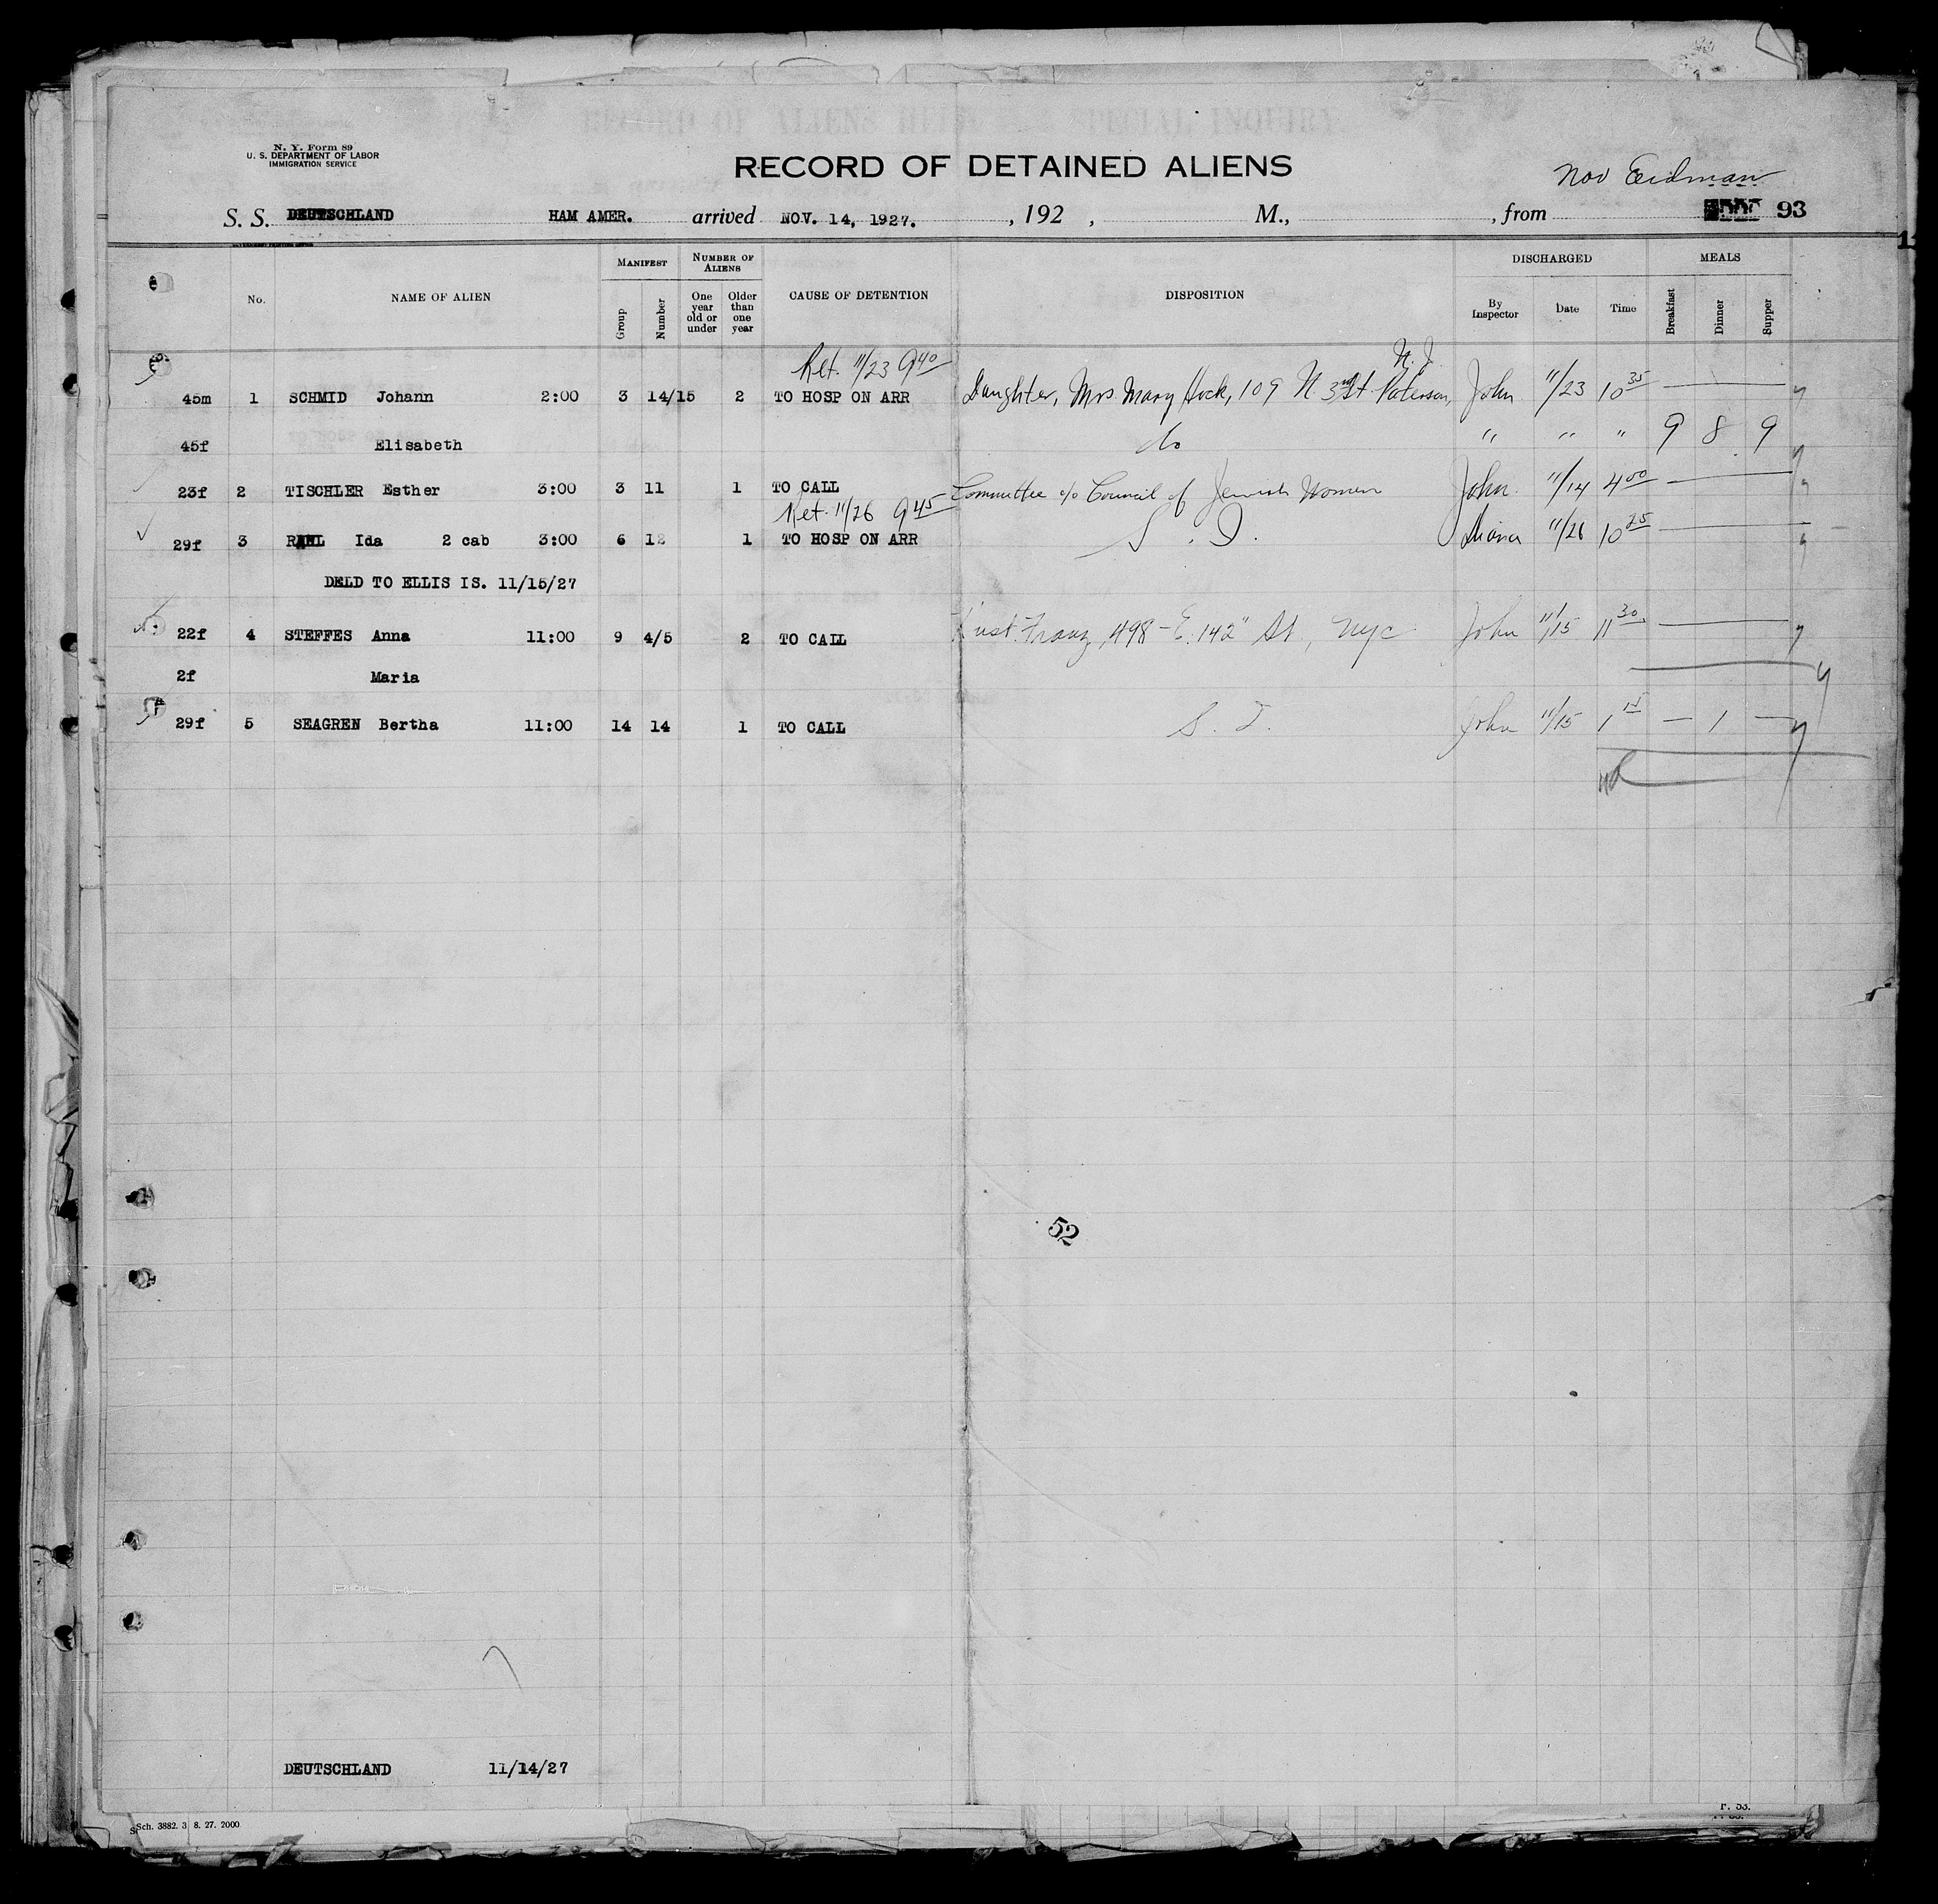 N. Y. Form 89
U. S. DEPARTMENT OF LABOR
IMMIGRATION SERVICE
RECORD OF DETAINED ALIENS
Nov Eidman
S. S. DEUTSCHLAND HAM AMER. arrived NOV. 14, 1927. , 192 , M., , from 93
No. NAME OF ALIEN MANIFEST NUMBER OF ALIENS CAUSE OF DETENTION DISPOSITION DISCHARGED MEALS
Group Number One year old or under Older than one year By Inspector Date Time Breakfast Dinner Supper
Ret. 11/23 9 40 N. J.
45m 1 SCHMID Johann 2:00 3 14/15 2 TO HOSP ON ARR Daughter, Mrs. Mary Hock, 109 N. 3rd St. Paterson, John 11/23 10 35
45f Elisabeth do " " " 9 8 9
23f 2 TISCHLER Esther 3:00 3 11 1 TO CALL Committee c/o Council of Jewish Women John 11/14 4 00
Ret. 11/26 9 45
29f 3 Ida 2 cab 3:00 6 12 1 TO HOSP ON ARR S. I. 11/26 10 25
DELD TO ELLIS IS. 11/15/27
22f 4 STEFFES Anna 11:00 9 4/5 2 TO CALL Franz, 498 - E. 142" St., NYC John 11/15 11 30
2f Maria
29f 5 SEAGREN Bertha 11:00 14 14 1 TO CALL S. I. John 11/15 1 15 — 1 —
52
DEUTSCHLAND 11/14/27
Sch. 3882. 3 8. 27. 2000